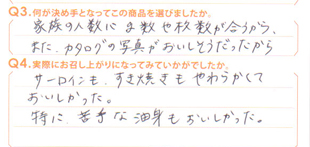 Q3.何が決め手となってこの商品を選びましたか。
家族の人数にg数や枚数が合うから、
また、カタログの写真がおいしそうだったから
Q4.実際にお召し上がりになってみていかがでしたか。
サーロインも、すき焼きもやわらかくて
おいしかった。
特に、苦手な油身もおいしかった。